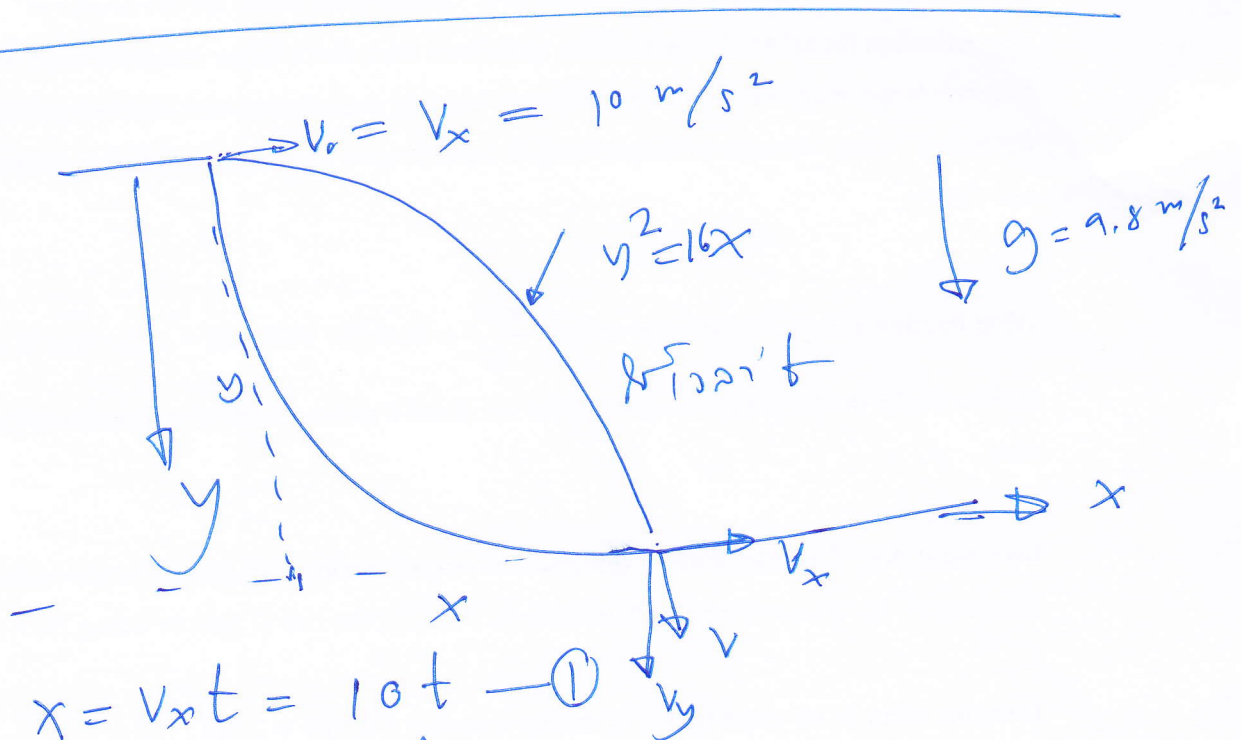 V₀ = Vₓ = 10 m/s²
y² = 16x
g = 9.8 m/s²
y
y
x
Vₓ
x
V
V_y
x = Vₓt = 10t — ①